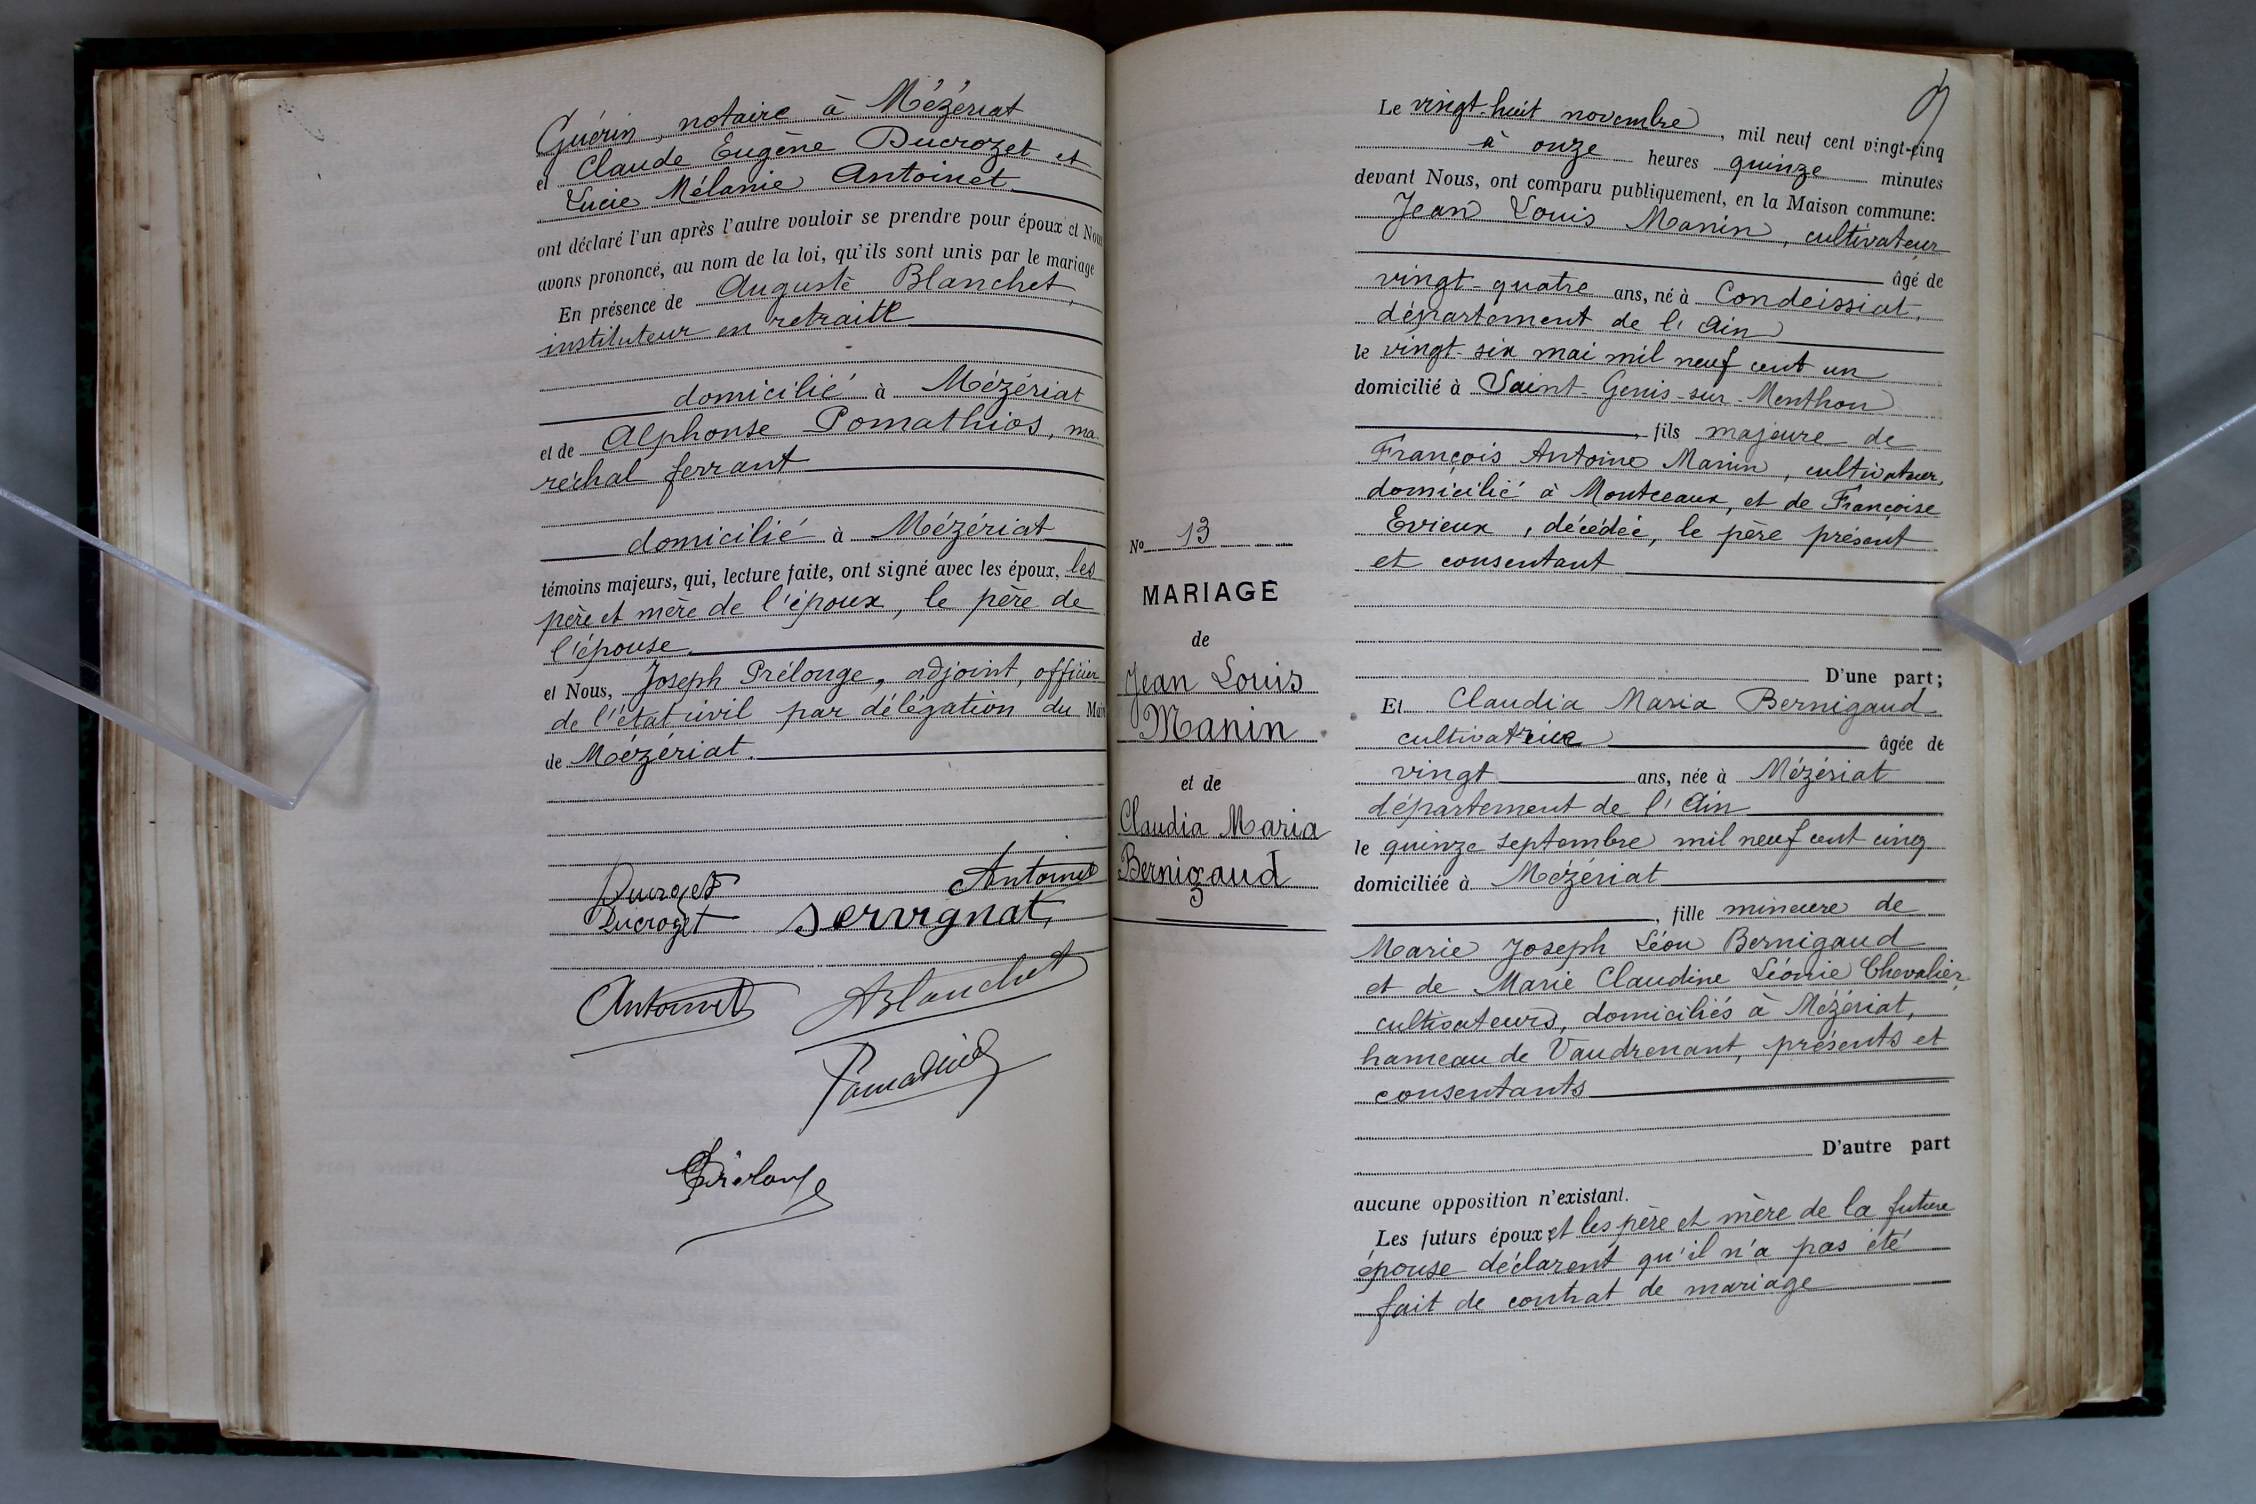 Guérin, notaire à Mézériat
et Claude Eugène Ducrozet et
Lucie Mélanie Antoinet
ont déclaré l'un après l'autre vouloir se prendre pour époux et Nous
avons prononcé, au nom de la loi, qu'ils sont unis par le mariage
En présence de Auguste Blanchet,
instituteur en retraite
domicilié à Mézériat
et de Alphonse Pomathios, ma-
réchal ferrant
domicilié à Mézériat
témoins majeurs, qui, lecture faite, ont signé avec les époux, les
père et mère de l'époux, le père de
l'épouse
et Nous, Joseph Prélonge, adjoint, officier
de l'état civil par délégation du Maire
de Mézériat.
Ducrozet Antoinet
Ducrozet Servignat
Antoinet ABlanchet
Pomathios
Prélonge
Nº 13
MARIAGE
de
Jean Louis
Manin
et de
Claudia Maria
Bernigaud
Le vingt-huit novembre, mil neuf cent vingt-cinq
à onze heures quinze minutes
devant Nous, ont comparu publiquement, en la Maison commune:
Jean Louis Manin, cultivateur
âgé de
vingt-quatre ans, né à Condeissiat,
département de l'Ain
le vingt-six mai mil neuf cent un
domicilié à Saint-Genis-sur-Menthon
, fils majeure de
François Antoine Manin, cultivateur,
domicilié à Montceaux, et de Françoise
Evieux, décédée, le père présent
et consentant
D'une part;
Et Claudia Maria Bernigaud
cultivatrice âgée de
vingt ans, née à Mézériat
département de l'Ain
le quinze septembre mil neuf cent cinq
domiciliée à Mézériat
, fille mineure de
Marie Joseph Léon Bernigaud
et de Marie Claudine Léonie Chevalier,
cultivateurs, domiciliés à Mézériat,
hameau de Vaudrenant, présents et
consentants
D'autre part
aucune opposition n'existant.
Les futurs époux et les père et mère de la future
épouse déclarent qu'il n'a pas été
fait de contrat de mariage